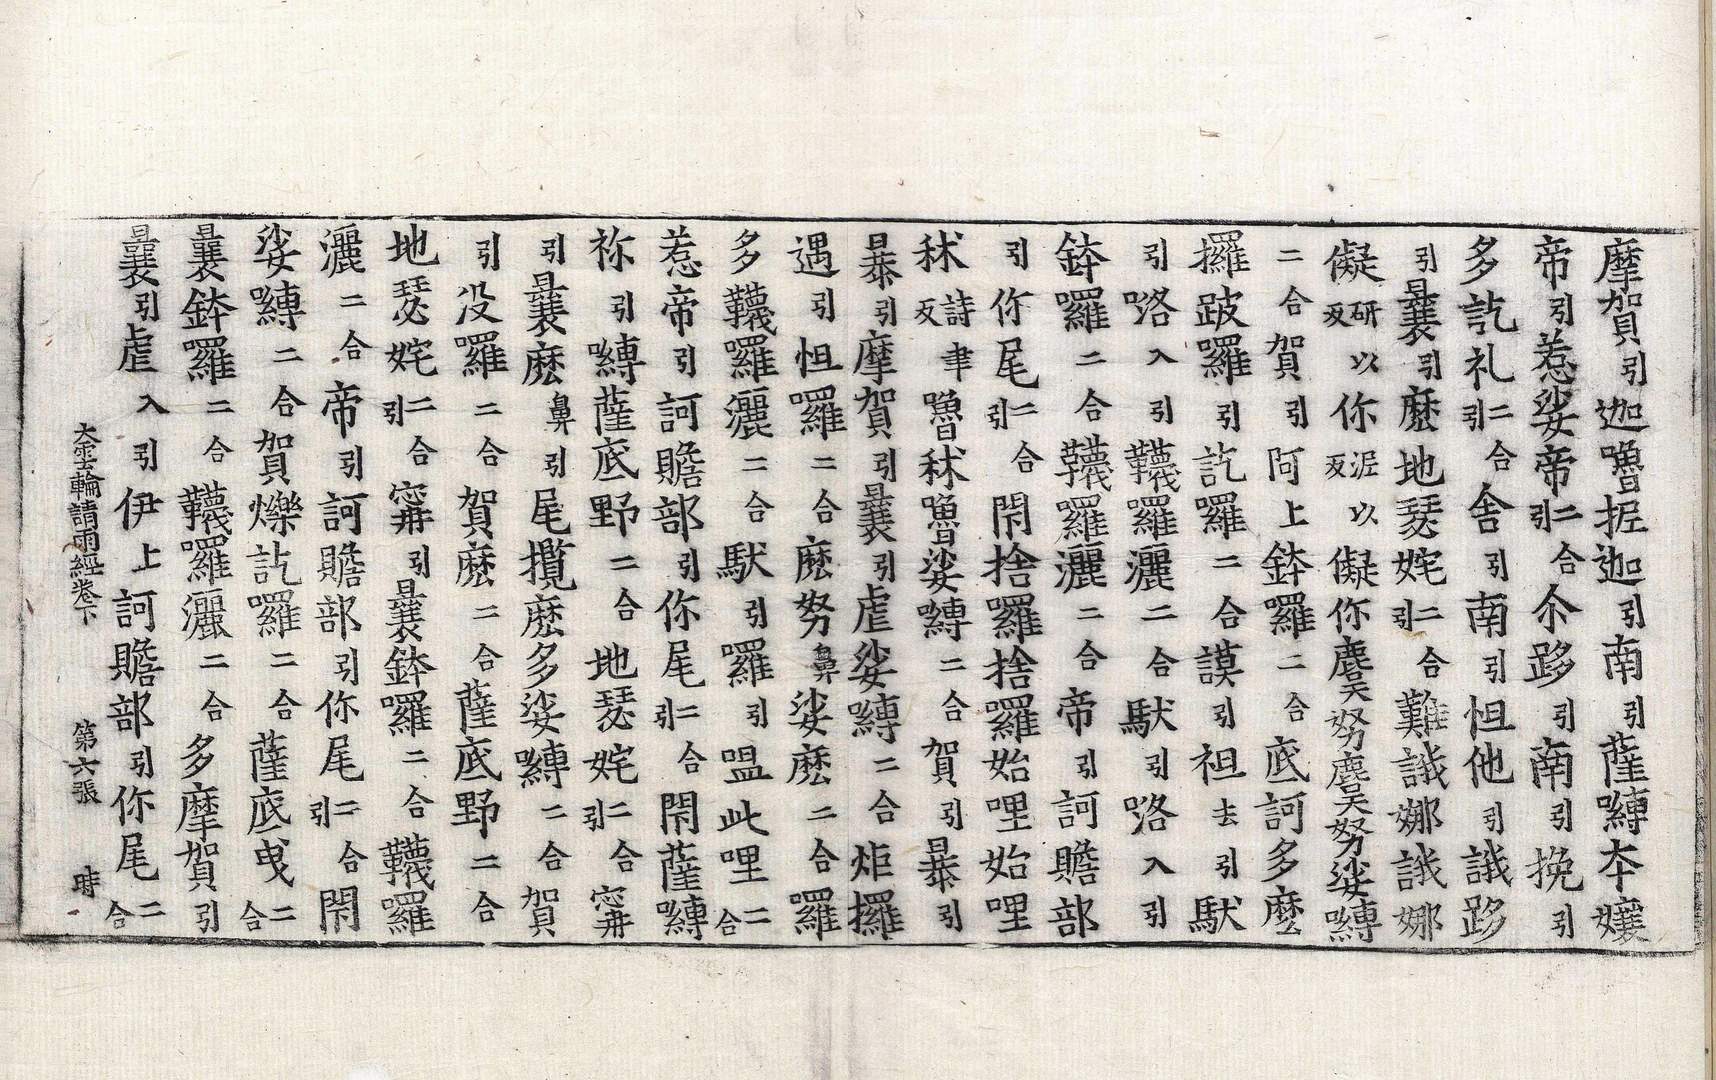 摩賀引迦嚕抳迦引南引薩嚩夲孃
帝引惹娑帝二合引尒跢引南引挽引
多訖礼二合引舍引南引怛他引誐跢
引曩引麽地瑟姹二合引難誐娜誐娜
儗研以反你泥以反儗你麌努麌努娑嚩
二合賀引阿上鉢囉二合底訶多麽
攞跛囉引訖囉二合謨引袒去引馱
引咯入引韈囉灑二合馱引咯入引
鉢囉二合韈囉灑二合帝引訶贍部
引你尾二合引閇捨囉捨囉始哩始哩
秫詩聿反嚕秫嚕娑嚩二合賀引暴引
曩引摩賀引曩引虐娑嚩二合炬攞
遇引怛囉二合麽努鼻娑麽二合囉
多韈囉灑二合馱引囉引㗚此哩二合
惹帝引訶贍部引你尾二合引閇薩嚩
祢引嚩薩底野二合地瑟姹二合引寗
引曩麽鼻引尾攬麽多娑嚩二合賀
引没囉二合賀麽二合薩底野二合
地瑟姹二合引寗引曩鉢囉二合韈囉
灑二合帝引訶贍部引你尾二合引閇
娑嚩二合賀爍訖囉二合薩底曳二合
曩鉢囉二合韈囉灑二合多摩賀引
曩引虐入引伊上訶贍部引你尾二合
大雲輪請雨經卷下　第六張　時